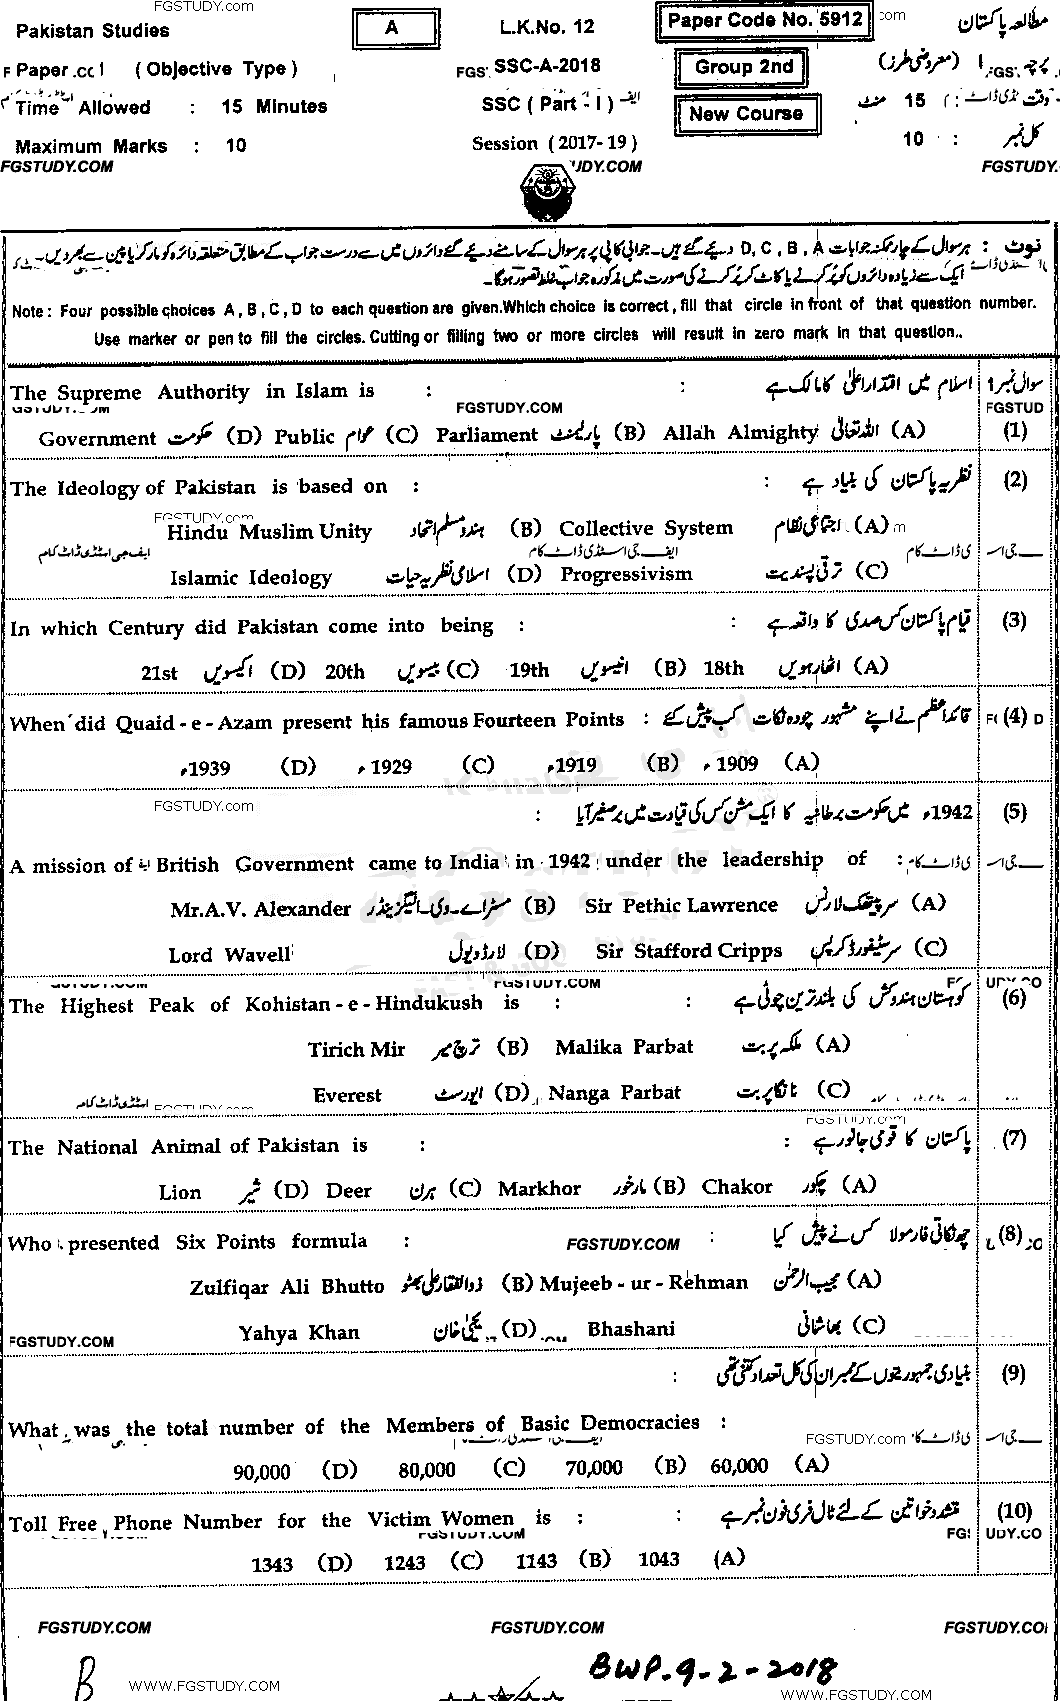 FGSTUDY.com
Pakistan Studies A L.K.No. 12 Paper Code No. 5912 com مطالعہ پاکستان
Paper 1 ( Objective Type ) FGS SSC-A-2018 Group 2nd پرچہ I (معروضی طرز)
Time Allowed : 15 Minutes SSC ( Part - I ) New Course وقت : 15 منٹ
Maximum Marks : 10 Session ( 2017-19 ) کل نمبر : 10
FGSTUDY.COM UDY.COM FGSTUDY.
نوٹ : ہر سوال کے چار ممکنہ جوابات D, C, B, A دیئے گئے ہیں۔ جوابی کاپی پر ہر سوال کے سامنے دیئے گئے دائروں میں سے درست جواب کے مطابق متعلقہ دائرہ کو مارکر یا پین سے بھر دیں۔
ایک سے زیادہ دائروں کو پُر کرنے یا کاٹ کر پُر کرنے کی صورت میں مذکورہ جواب غلط تصور ہوگا۔
Note : Four possible choices A , B , C , D to each question are given.Which choice is correct , fill that circle in front of that question number.
Use marker or pen to fill the circles. Cutting or filling two or more circles will result in zero mark in that question..
The Supreme Authority in Islam is : : اسلام میں اقتدار اعلیٰ کا مالک ہے سوال نمبر 1
GSTUDY.COM FGSTUDY.COM FGSTUD
Government حکومت (D) Public عوام (C) Parliament پارلیمنٹ (B) Allah Almighty اللہ تعالیٰ (A) (1)
The Ideology of Pakistan is based on : : نظریہ پاکستان کی بنیاد ہے (2)
FGSTUDY.com
Hindu Muslim Unity ہندو مسلم اتحاد (B) Collective System اجتماعی نظام (A)
ایف جی اسٹڈی ڈاٹ کام ایف جی اسٹڈی ڈاٹ کام
Islamic Ideology اسلامی نظریہ حیات (D) Progressivism ترقی پسندیت (C)
In which Century did Pakistan come into being : : قیام پاکستان کس صدی کا واقعہ ہے (3)
21st اکیسویں (D) 20th بیسویں (C) 19th انیسویں (B) 18th اٹھارہویں (A)
When did Quaid - e - Azam present his famous Fourteen Points : قائداعظم نے اپنے مشہور چودہ نکات کب پیش کئے (4)
1939ء (D) 1929ء (C) 1919ء (B) 1909ء (A)
FGSTUDY.com : 1942ء میں حکومت برطانیہ کا ایک مشن کس کی قیادت میں برصغیر آیا (5)
A mission of British Government came to India in 1942 under the leadership of :
Mr.A.V. Alexander مسٹر اے۔وی۔الیگزینڈر (B) Sir Pethic Lawrence سر پیتھک لارنس (A)
Lord Wavell لارڈ ویول (D) Sir Stafford Cripps سر سٹیفورڈ کرپس (C)
GSTUDY.COM FGSTUDY.COM
The Highest Peak of Kohistan - e - Hindukush is : : کوہستان ہندوکش کی بلند ترین چوٹی ہے (6)
Tirich Mir ترچ میر (B) Malika Parbat ملکہ پربت (A)
Everest ایورسٹ (D) Nanga Parbat نانگا پربت (C)
FGSTUDY.com FGSTUDY.com
The National Animal of Pakistan is : : پاکستان کا قومی جانور ہے (7)
Lion شیر (D) Deer ہرن (C) Markhor مارخور (B) Chakor چکور (A)
Who presented Six Points formula : FGSTUDY.COM : چھ نکاتی فارمولا کس نے پیش کیا (8)
Zulfiqar Ali Bhutto ذوالفقار علی بھٹو (B) Mujeeb - ur - Rehman مجیب الرحمٰن (A)
FGSTUDY.COM Yahya Khan یحییٰ خان (D) Bhashani بھاشانی (C)
: بنیادی جمہوریتوں کے ممبران کی کل تعداد کتنی تھی (9)
What was the total number of the Members of Basic Democracies :
FGSTUDY.com
90,000 (D) 80,000 (C) 70,000 (B) 60,000 (A)
Toll Free Phone Number for the Victim Women is : : تشدد خواتین کے لئے ٹال فری فون نمبر ہے (10)
FGSTUDY.COM FGS UDY.CO
1343 (D) 1243 (C) 1143 (B) 1043 (A)
FGSTUDY.COM FGSTUDY.COM FGSTUDY.CO
B WWW.FGSTUDY.COM BWP-9-2-2018
WWW.FGSTUDY.COM